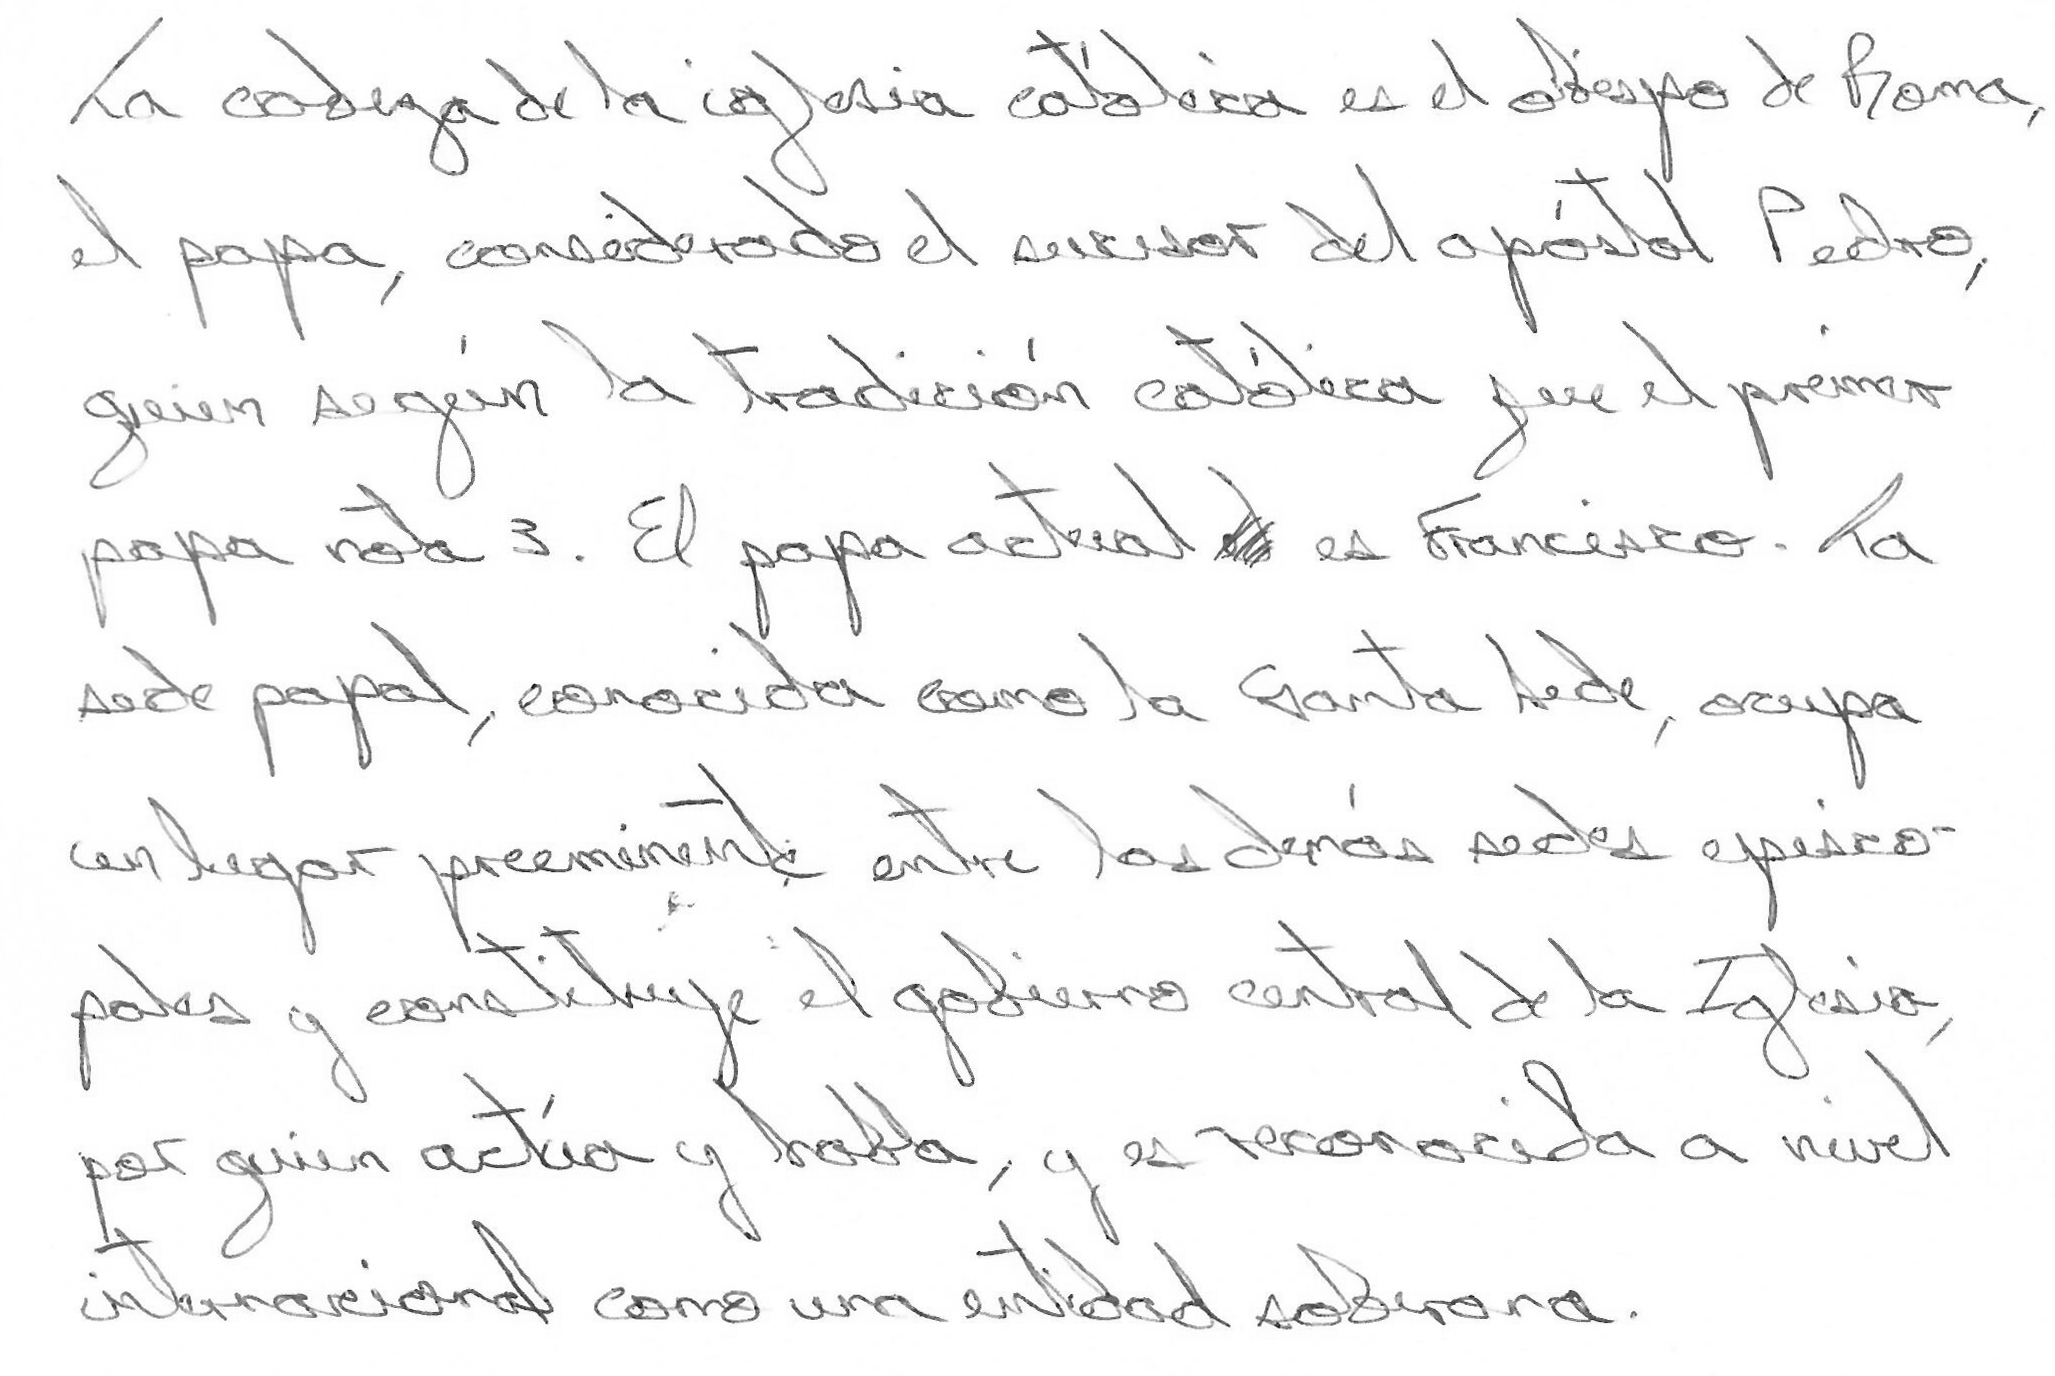 La cabeza de la iglesia católica es el obispo de Roma,
el papa, considerado el sucesor del apóstol Pedro,
quien según la tradición católica fue el primer
papa nota 3. El papa actual es Francisco. La
sede papal, conocida como la Santa Sede, ocupa
un lugar preeminente entre las demás sedes episco-
pales y constituye el gobierno central de la Iglesia,
por quien actúa y habla, y es reconocida a nivel
internacional como una entidad soberana.